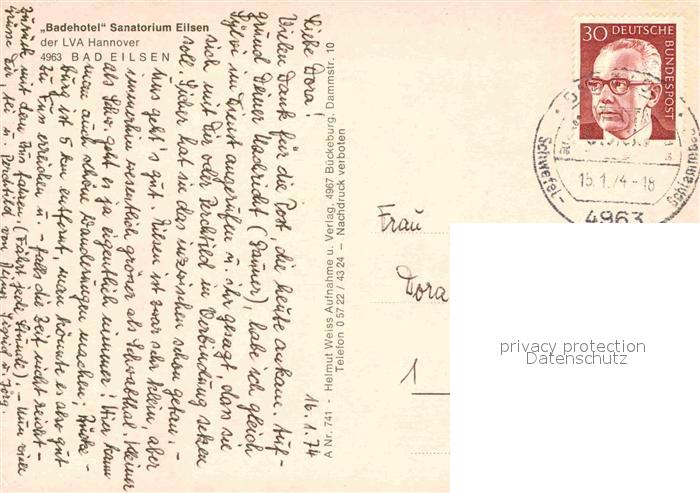 „Badehotel" Sanatorium Eilsen
der LVA Hannover
4963 BAD EILSEN
16.1.74
Liebe Dora!
Vielen Dank für die Post, die heute ankam. Auf-
grund Deiner Nachricht (Dauer), habe ich gleich
im Dienst angerufen u. ihr gesagt, dass sie
sich mit Dir oder in Verbindung setzen
soll. Sicher hat sie das inzwischen schon getan. -
Uns geht's gut. Eilsen ist zwar sehr klein, aber
immerhin wesentlich gröner als Schwabthal. Kleiner
als geht es ja eigentlich nimmer! Hier kann
man auch schöne Wanderungen machen; Bücke-
burg ist 5 km entfernt, man könnte es also gut
zu Fuss erreichen u. - falls die Zeit nicht reicht -
zurück mit dem Bus fahren. (Fährt jede Stunde). - Nun viele
Grüsse Dir, u. von Deiner Sigrid u. Jörg.
A Nr. 741 - Helmut Weiss Aufnahme u. Verlag, 4967 Bückeburg, Dammstr. 10
Telefon 0 57 22 / 43 24 — Nachdruck verboten
30 DEUTSCHE
BUNDESPOST
Schwefel-
Schlammbad
15.1.74-18
4963
Frau
Dora
1
privacy protection
Datenschutz